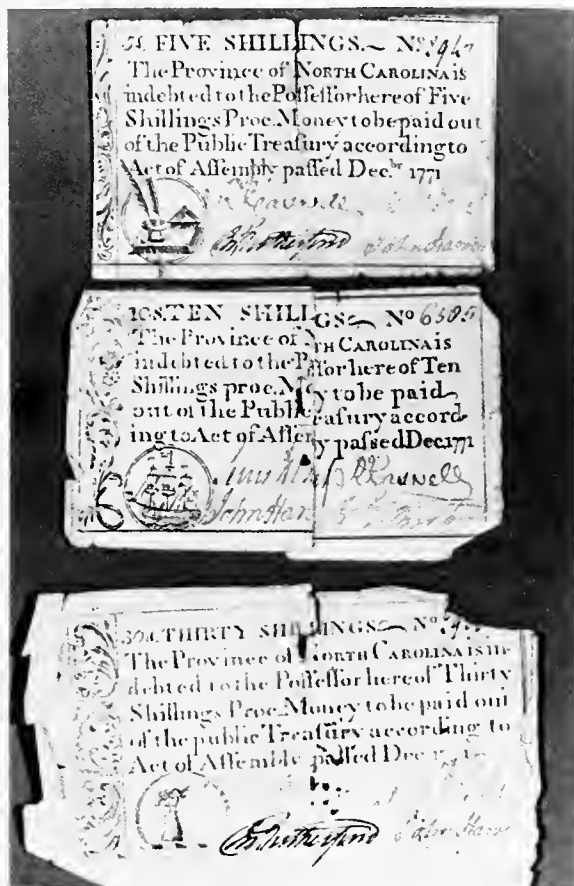 5s. FIVE SHILLINGS.~ No.
The Province of NORTH CAROLINA is
indebted to the Poſſeſſor hereof Five
Shillings Proc. Money to be paid out
of the Public Treaſury according to
Act of Aſſembly paſſed Dec.br 1771
Rd Caswell
Rutherford John Harvey
10S. TEN SHILLINGS~ No 6305
The Province of NORTH CAROLINA is
indebted to the Poſſeſſor hereof Ten
Shillings proc. Money to be paid
out of the Public Treaſury accord
ing to Act of Aſſembly paſſed Dec. 1771
Rd Caswell
John Har
30s. THIRTY SHILLINGS~ No
The Province of NORTH CAROLINA is in-
debted to the Poſſeſſor hereof Thirty
Shillings Proc. Money to be paid out
of the public Treaſury according to
Act of Aſſembly paſſed Dec
Rutherford John Harvey